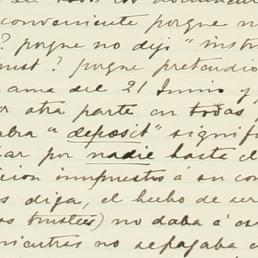 conveniente porque n
? porque no dijo "instr
must? porque pretendio
ama del 21 Junio y
or otra parte en todas
abra "deposit" signif
ar por nadie hasta el
icion impuestos á su con
s diga, el hecho de ser
os trustees) no daba á es
mientras no se pagaba